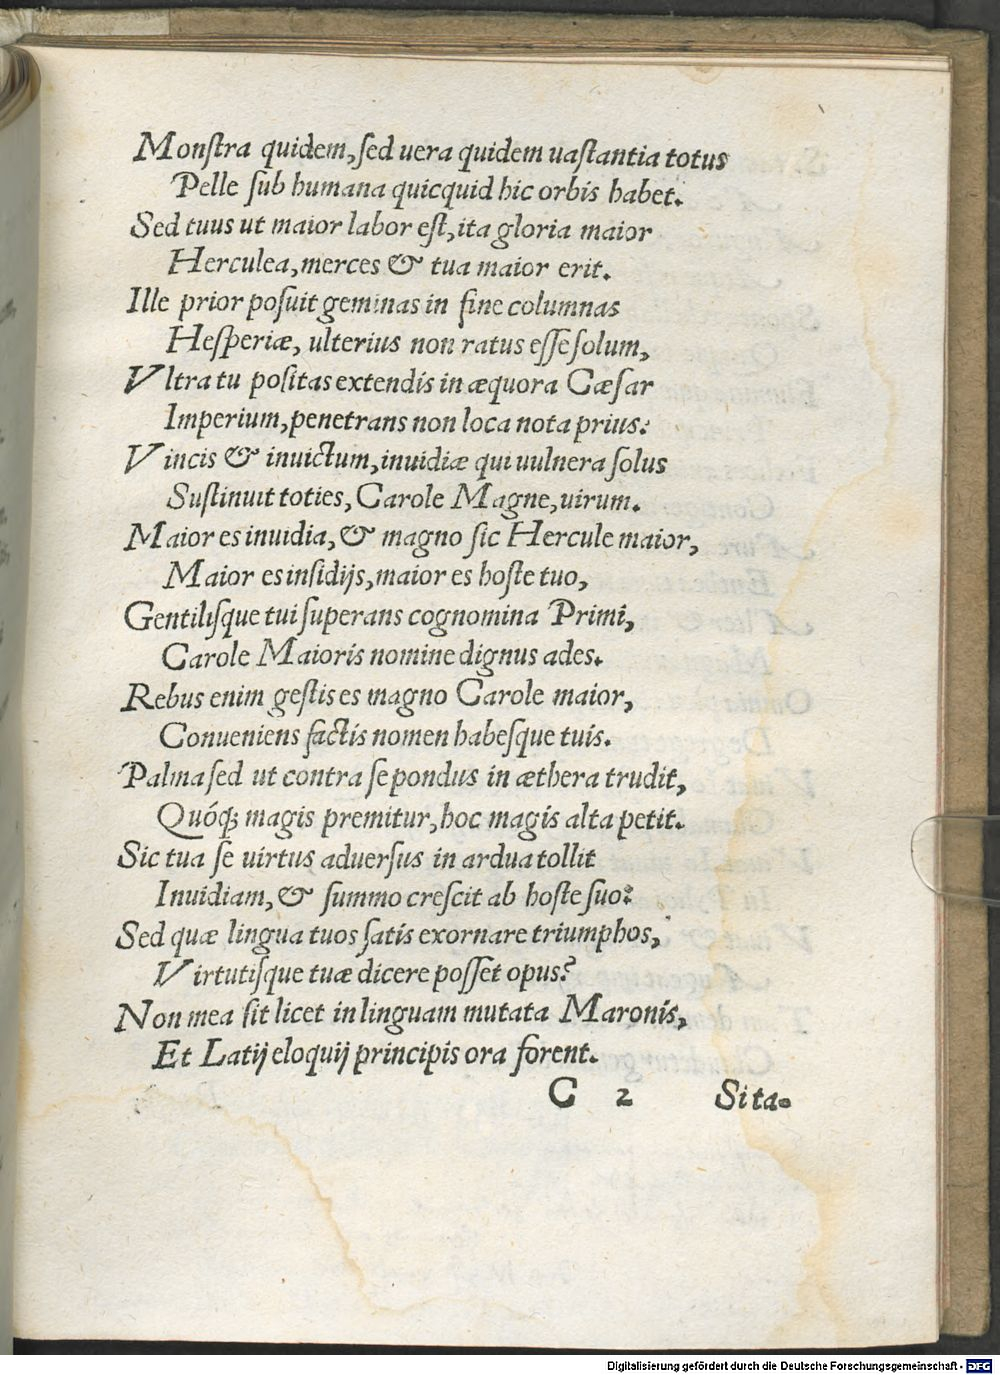 Monſtra quidem, ſed uera quidem uaſtantia totus
Pelle ſub humana quicquid hic orbis habet.
Sed tuus ut maior labor eſt, ita gloria maior
Herculea, merces & tua maior erit.
Ille prior poſuit geminas in fine columnas
Heſperiæ, ulterius non ratus eſſe ſolum,
Vltra tu poſitas extendis in æquora Cæſar
Imperium, penetrans non loca nota prius:
Vincis & inuictum, inuidiæ qui uulnera ſolus
Suſtinuit toties, Carole Magne, uirum.
Maior es inuidia, & magno ſic Hercule maior,
Maior es inſidijs, maior es hoſte tuo,
Gentiliſque tui ſuperans cognomina Primi,
Carole Maioris nomine dignus ades.
Rebus enim geſtis es magno Carole maior,
Conueniens factis nomen habeſque tuis.
Palma ſed ut contra ſe pondus in æthera trudit,
Quóq; magis premitur, hoc magis alta petit.
Sic tua ſe uirtus aduerſus in ardua tollit
Inuidiam, & ſummo creſcit ab hoſte ſuo:
Sed quæ lingua tuos ſatis exornare triumphos,
Virtutiſque tuæ dicere poſſet opus?
Non mea ſit licet in linguam mutata Maronis,
Et Latij eloquij principis ora forent.
C 2 Sita-
Digitalisierung gefördert durch die Deutsche Forschungsgemeinschaft - DFG